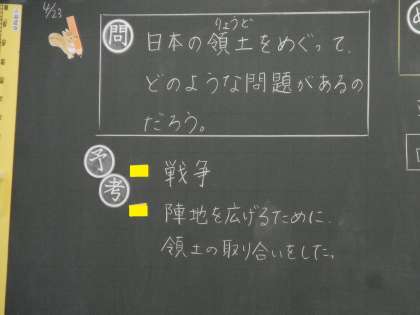 4/23
問
りょうど
日本の領土をめぐって、
どのような問題があるの
だろう。
予
考
戦争
陣地を広げるために、
領土の取り合いをした。